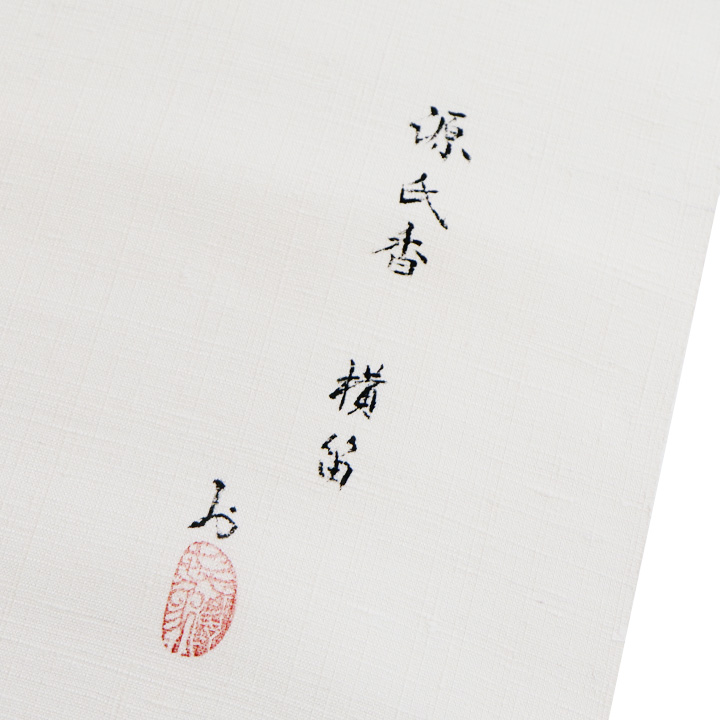 源氏香 横笛